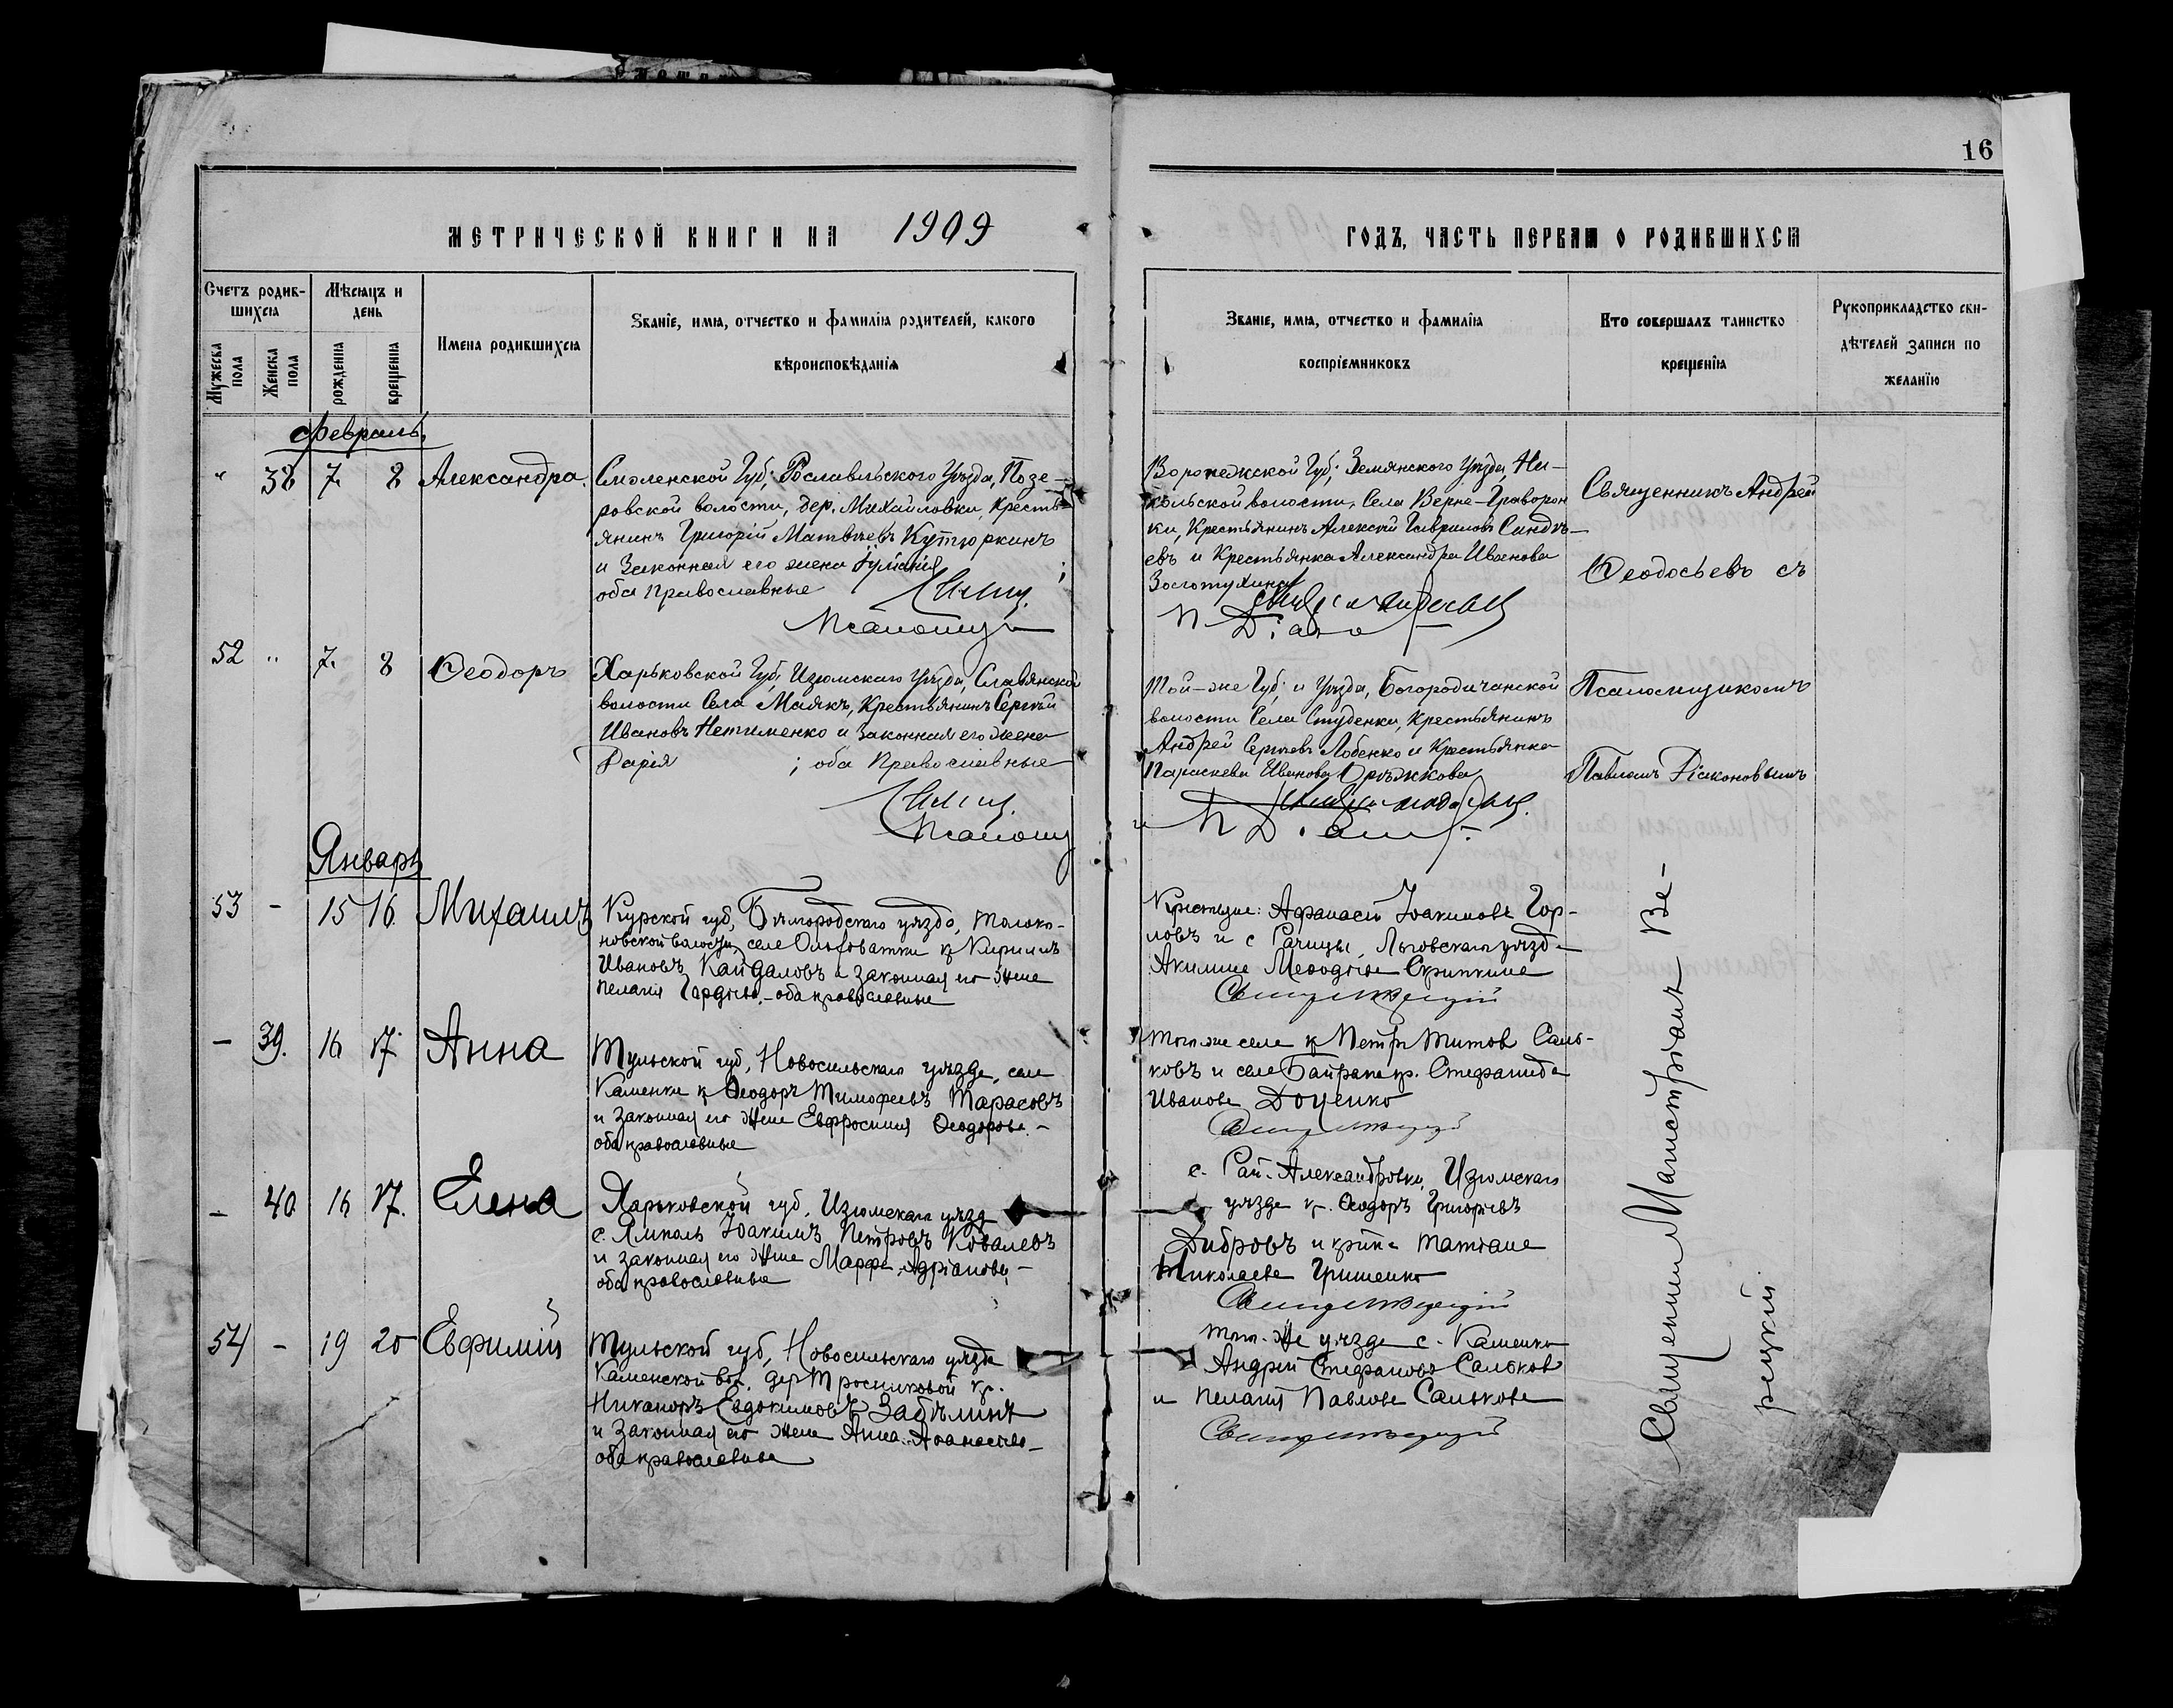 16
МЕТРИЧЕСКОЙ КНИГИ НА 1909
ГОДЪ, ЧАСТЬ ПЕРВАЯ О РОДИВШИХСЯ
Счетъ родив-
шихся
Мѣсяцъ и
день
Мужеска
пола
Женска
пола
рожденiя
крещенiя
Имена родившихся
Званiе, имя, отчество и фамилiя родителей, какого
вѣроисповѣданiя
Званiе, имя, отчество и фамилiя
воспрiемниковъ
Кто совершалъ таинство
крещенiя
Рукоприкладство сви-
дѣтелей записи по
желанiю
Февраль
" 38 7. 8 Александра.
Смоленской Губ; Рославльского Уѣзда, Позе-
ровской волости, дер. Михайловки, Кресть-
янинъ Григорiй Матвѣевъ Кутюркинъ
и Законная его жена ;
оба Православные
Воронежской Губ; Землянского Уѣзда, Ни-
кольской волости, Села Верхне-Гравoрон
ки, Крестьянинъ Алексѣй Гавриловъ Синдѣ-
евъ и Крестьянка Александра Иванова
Золотухина
Священникъ Андрей
Ѳеодосьевъ съ
52 " 7. 8 Ѳеодоръ
Харьковской Губ, Изюмскаго Уѣзда, Славянской
волости Села Маякъ, Крестьянинъ Сергѣй
Ивановъ Нетименко и Законная его жена
Дарiя ; оба Православные
Той-же Губ; и Уѣзда, Богородичанской
волости Села Студенка, Крестьянинъ
Андрей Сергѣевъ Лобенко и Крестьянка
Параскева Иванова
Псаломщикомъ
Павломъ Дiаконовымъ
Январь
53 - 15 16 Михаилъ
Курской губ, Бѣлгородскаго уѣзда, Толоко-
новской волости, села Ольховатки кр Кириллъ
Ивановъ Кайдаловъ и законная его жена
Пелагiя Гордѣева - оба православные
Крестьяне: Афанасiй Iоакимовъ Гор-
ловъ и с Гачищы, Льговскаго уѣзда
Акилина Меѳодьева Скрипкина
- 39. 16 17. Анна
Тульской губ, Новосильскаго уѣзда, села
Каменки кр Ѳеодоръ Тимофеевъ Тарасовъ
и законная его жена Евфросинiя Ѳеодорова -
оба православные
Того же села кр Петръ Титовъ Саль-
ковъ и села Байрака кр. Стефанида
Иванова Доценко
- 40 16 17. Елена
Харьковской губ, Изюмскаго уѣзда
с. Ямполь Iоакимъ Петровъ Ковалевъ
и законная его жена Марфа Адрiанова -
оба православные
с. Рай-Александровки, Изюмскаго
уѣзда кр. Ѳеодоръ Григорьевъ
Дибровъ и кр-нка Татiана
Николаева Гришенко
54 - 19 20 Евфимiй
Тульской губ, Новосильскаго уѣзда
Каменской вол. дер Тросниковой кр.
Никаноръ Евдокимовъ Забѣлинъ
и законная его жена Анна Аѳанасьева -
оба православные
Того-же уѣзда с. Каменки
Андрей Стефановъ Сальков
и Пелагiя Павлова Салькова
Священникъ Ве-
рецкiй